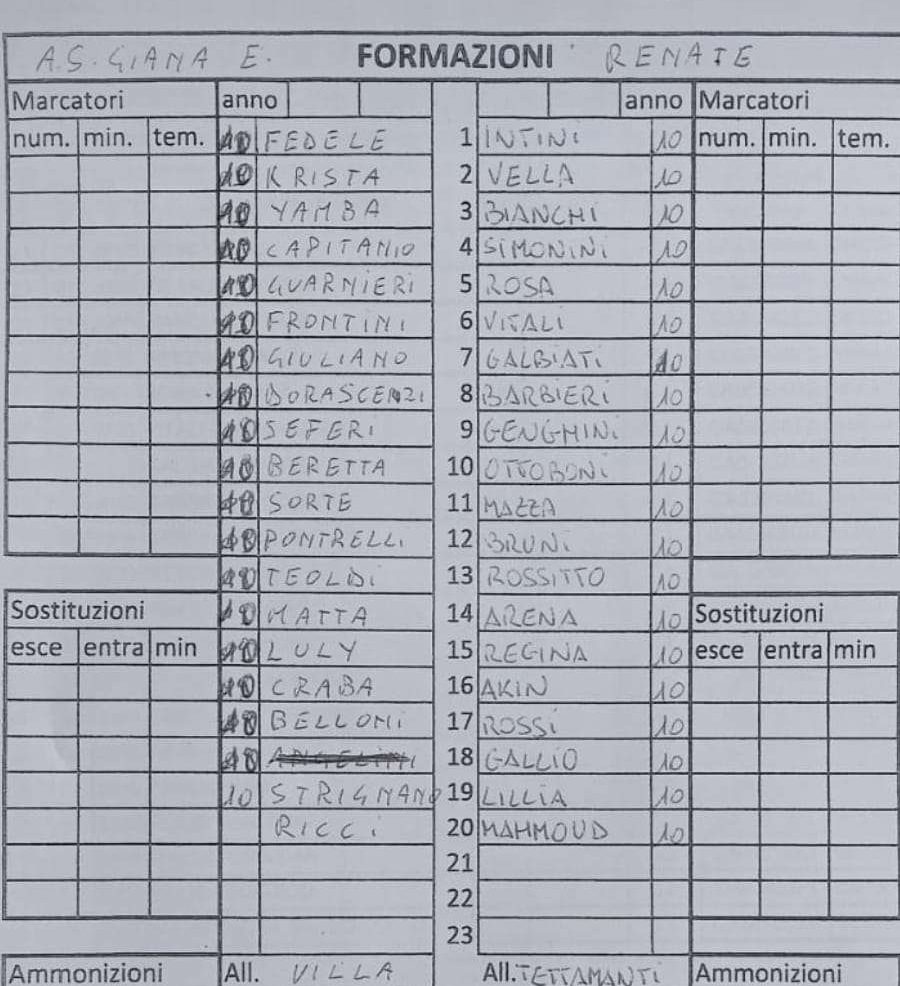 A.S. GIANA E. FORMAZIONI RENATE
Marcatori anno anno Marcatori
num. min. tem. 10 FEDELE 1 INTINI 10 num. min. tem.
10 KRISTA 2 VELLA 10
10 YAMBA 3 BIANCHI 10
10 CAPITANIO 4 SIMONINI 10
10 GUARNIERI 5 ROSA 10
10 FRONTINI 6 VITALI 10
10 GIULIANO 7 GALBIATI 10
10 BORASCENZI 8 BARBIERI 10
10 SEFERI 9 GENGHINI 10
10 BERETTA 10 OTTOBONI 10
10 SORTE 11 MAZZA 10
10 PONTRELLI 12 BRUNI 10
10 TEOLDI 13 ROSSITTO 10
Sostituzioni 10 MATTA 14 ARENA 10 Sostituzioni
esce entra min 10 LULY 15 REGINA 10 esce entra min
10 CRABA 16 AKIN 10
10 BELLONI 17 ROSSI 10
10 ANGELINI 18 GALLIO 10
10 STRIGNANO 19 LILLIA 10
RICCI 20 MAHMOUD 10
21
22
23
Ammonizioni All. VILLA All. TETTAMANTI Ammonizioni